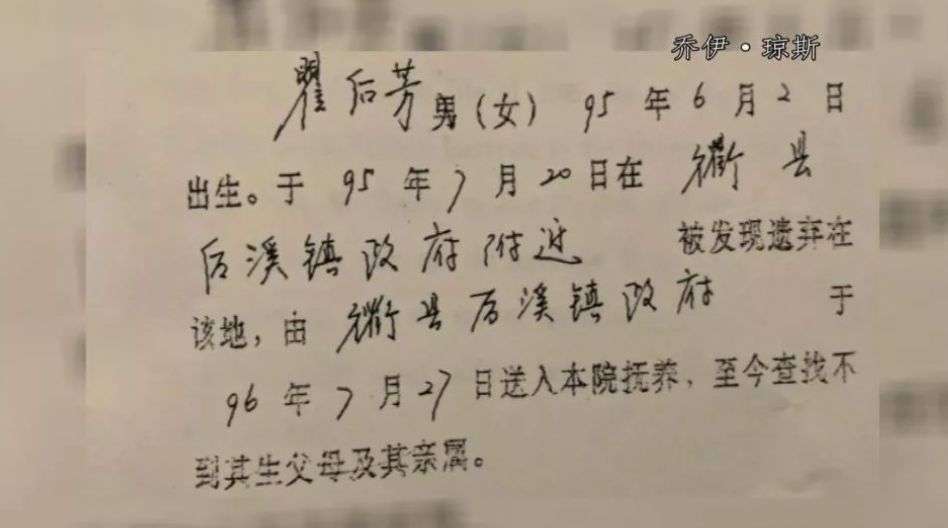 乔伊·琼斯
瞿后芳男(女) 95年6月2日
出生。于95年7月20日在衢县
后溪镇政府附近 被发现遗弃在
该地,由衢县后溪镇政府 于
96年7月27日送入本院抚养,至今查找不
到其生父母及其亲属。